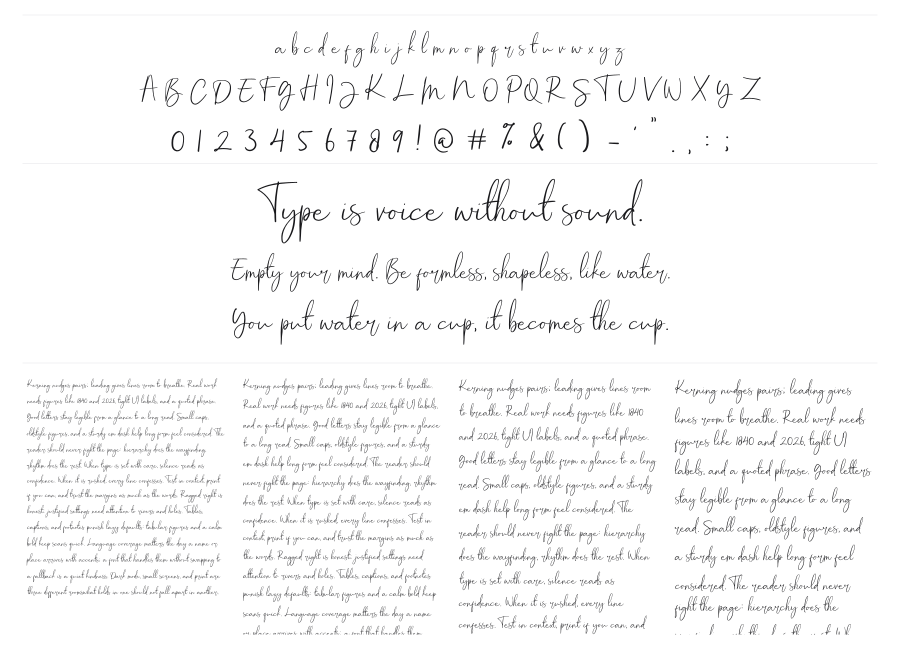 a b c d e f g h i j k l m n o p q r s t u v w x y z
A B C D E F G H I J K L M N O P Q R S T U V W X Y Z
0 1 2 3 4 5 6 7 8 9 ! @ # % & ( ) - ' " . , : ;
Type is voice without sound.
Empty your mind. Be formless, shapeless, like water.
You put water in a cup, it becomes the cup.
Kerning nudges pairs; leading gives lines room to breathe. Real work
needs figures like 1840 and 2026, tight UI labels, and a quoted phrase.
Good letters stay legible from a glance to a long read. Small caps,
oldstyle figures, and a sturdy em dash help long form feel considered. The
reader should never fight the page: hierarchy does the wayfinding,
rhythm does the rest. When type is set with care, silence reads as
confidence. When it is rushed, every line confesses. Test in context, print
if you can, and trust the margins as much as the words. Ragged right is
honest; justified settings need attention to rivers and holes. Tables,
captions, and footnotes punish lazy defaults: tabular figures and a calm
bold keep scans quick. Language coverage matters the day a name or
place arrives with accents; a font that handles them without swapping to
a fallback is a quiet kindness. Dark mode, small screens, and print are
three different rooms; what holds in one should not fall apart in another.
Kerning nudges pairs; leading gives lines room to breathe.
Real work needs figures like 1840 and 2026, tight UI labels,
and a quoted phrase. Good letters stay legible from a glance
to a long read. Small caps, oldstyle figures, and a sturdy
em dash help long form feel considered. The reader should
never fight the page: hierarchy does the wayfinding, rhythm
does the rest. When type is set with care, silence reads as
confidence. When it is rushed, every line confesses. Test in
context, print if you can, and trust the margins as much as
the words. Ragged right is honest; justified settings need
attention to rivers and holes. Tables, captions, and footnotes
punish lazy defaults: tabular figures and a calm bold keep
scans quick. Language coverage matters the day a name
or place arrives with accents; a font that handles them
Kerning nudges pairs; leading gives lines room
to breathe. Real work needs figures like 1840
and 2026, tight UI labels, and a quoted phrase.
Good letters stay legible from a glance to a long
read. Small caps, oldstyle figures, and a sturdy
em dash help long form feel considered. The
reader should never fight the page: hierarchy
does the wayfinding, rhythm does the rest. When
type is set with care, silence reads as
confidence. When it is rushed, every line
confesses. Test in context, print if you can, and
Kerning nudges pairs; leading gives
lines room to breathe. Real work needs
figures like 1840 and 2026, tight UI
labels, and a quoted phrase. Good letters
stay legible from a glance to a long
read. Small caps, oldstyle figures, and
a sturdy em dash help long form feel
considered. The reader should never
fight the page: hierarchy does the